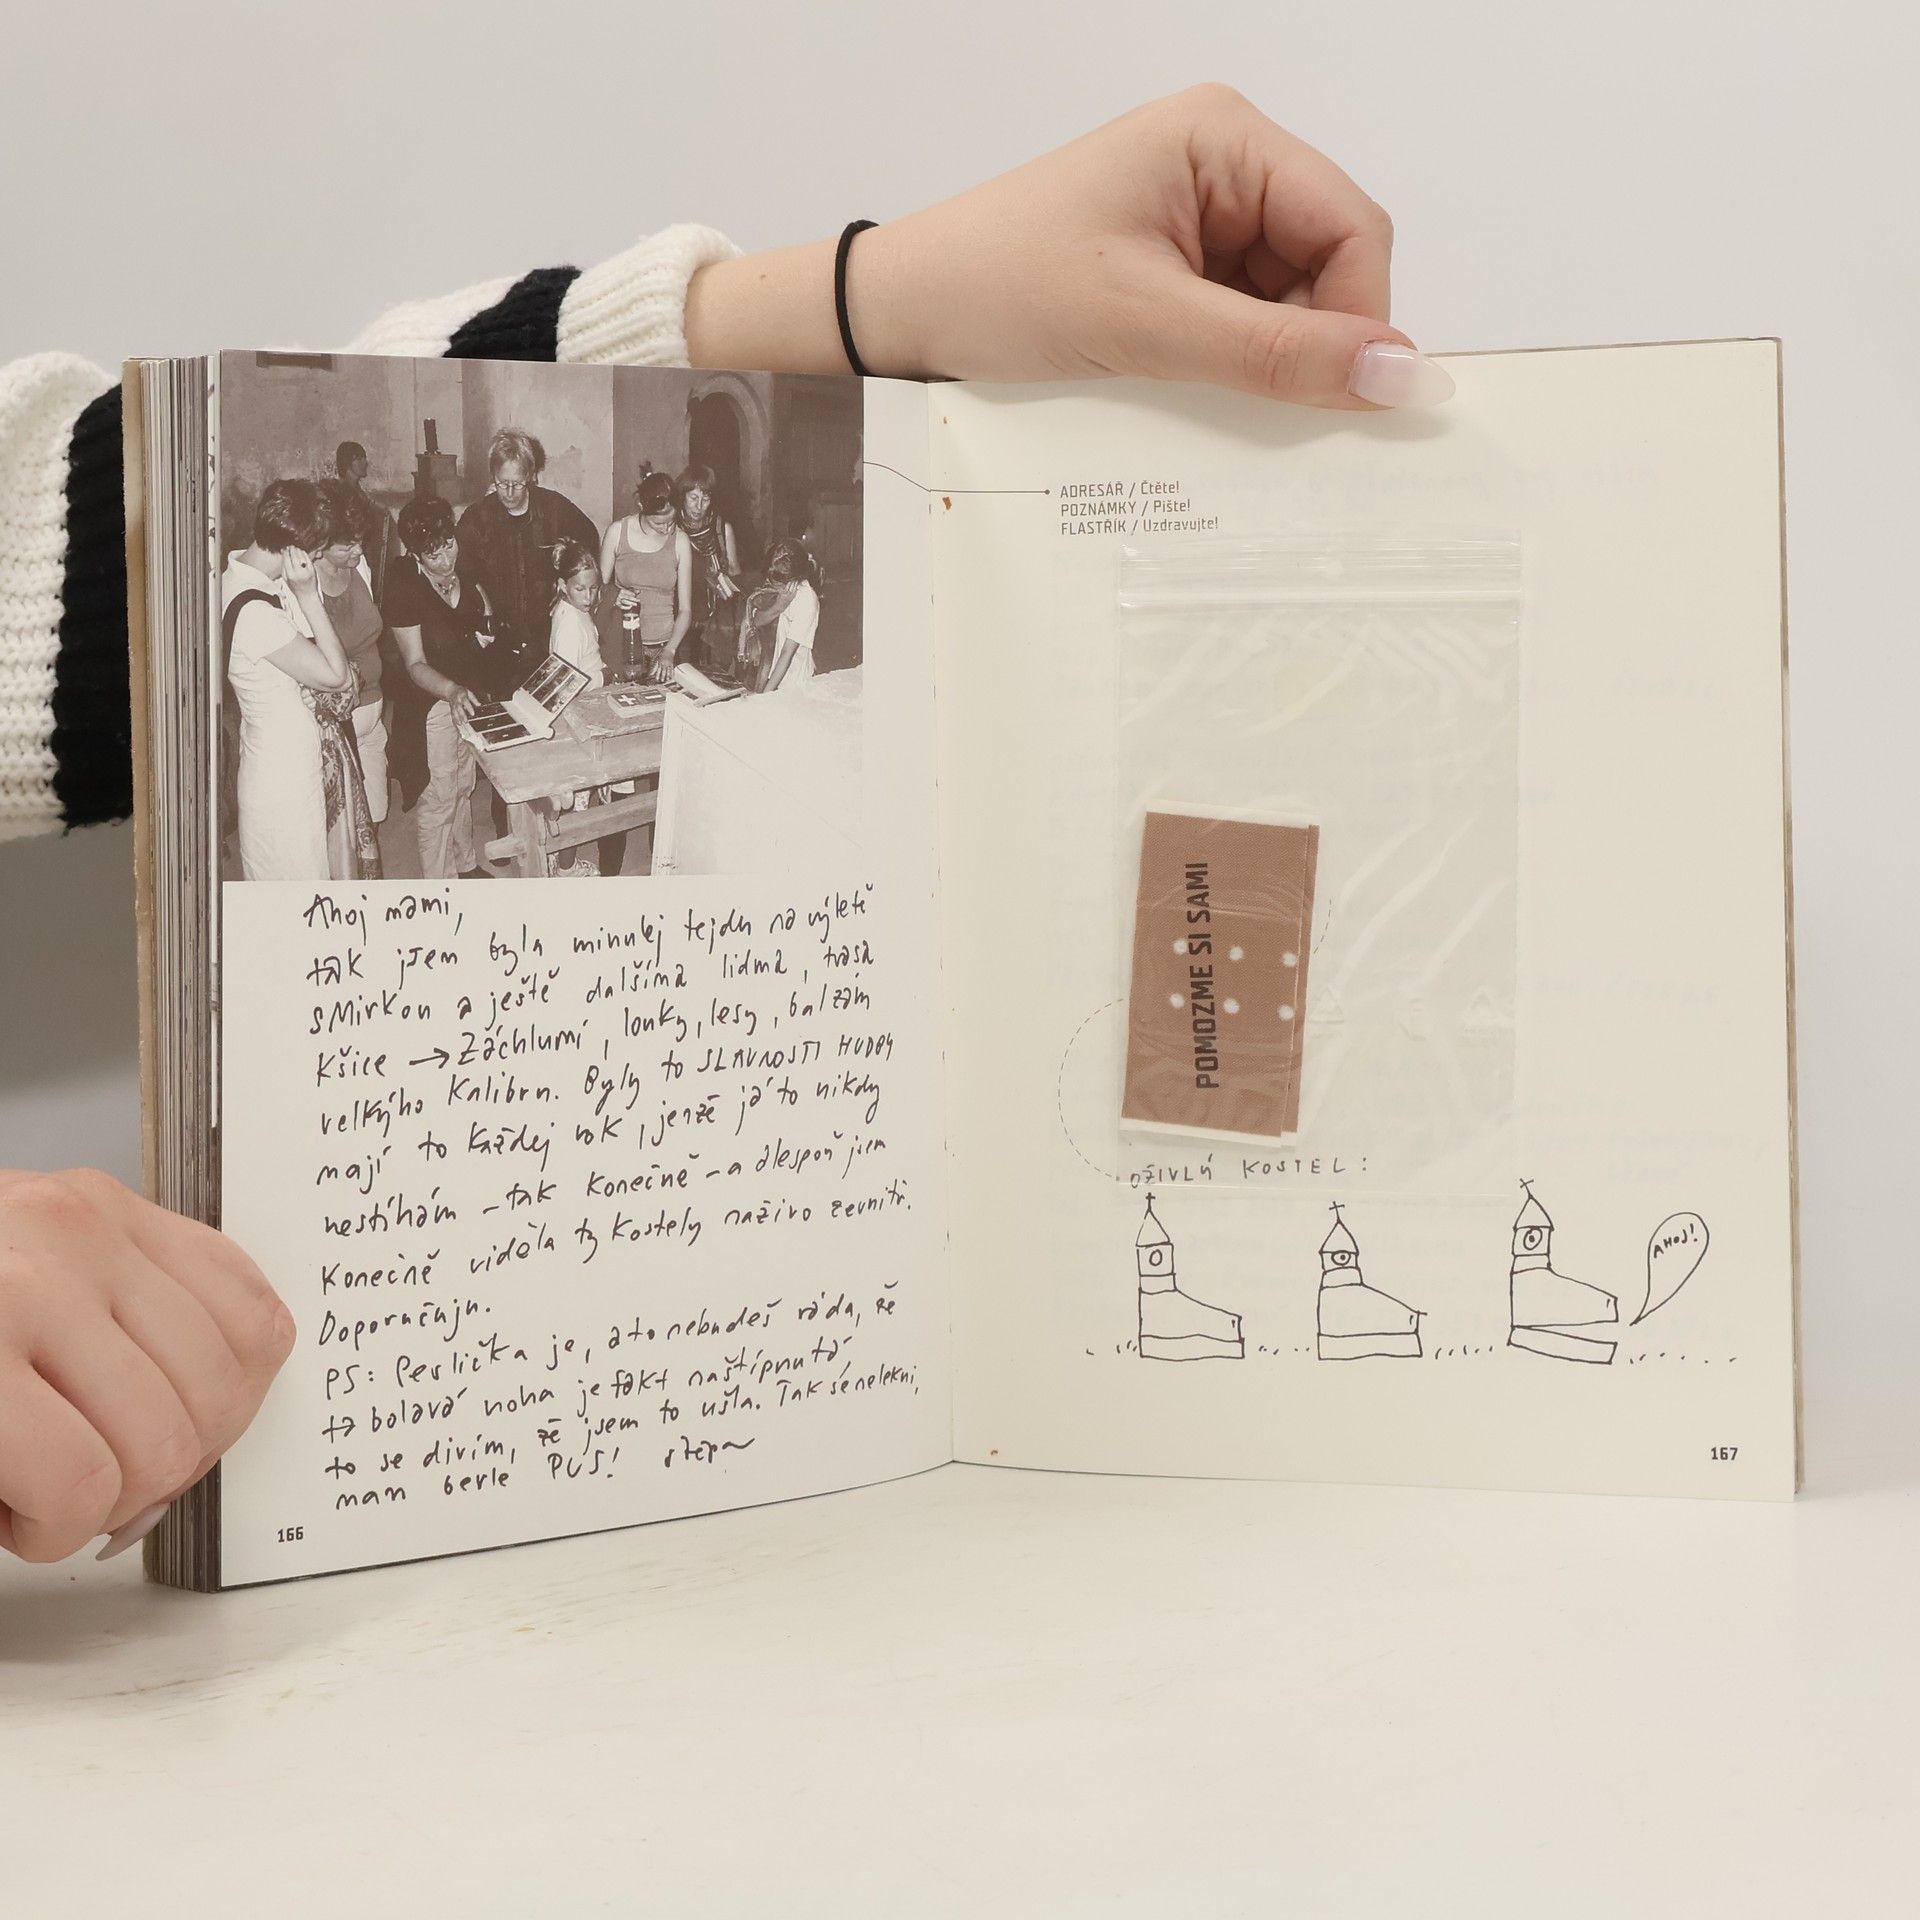 Ahoj mami,
tak jsem byla minulej tejdn na výletě
s Mirkou a ještě dalšíma lidma, trasa
Kšice → Záchlumí, louky, lesy, balzám
velkýho kalibru. Byly to SLAVNOSTI HUDBY
mají to každej rok, jenže já to nikdy
nestíhám – tak konečně – a alespoň jsem
konečně viděla ty kostely naživo zevnitř.
Doporučuju.
PS: Perlička je, a to nebudeš ráda, že
ta bolavá noha je fakt naštípnutá
to se divím, že jsem to ušla. Tak se nelekni,
mam berle PUS! stepa
166
ADRESÁŘ / Čtěte!
POZNÁMKY / Pište!
FLASTŘÍK / Uzdravujte!
POMOZME SI SAMI
OŽIVLÝ KOSTEL:
AHOJ!
167